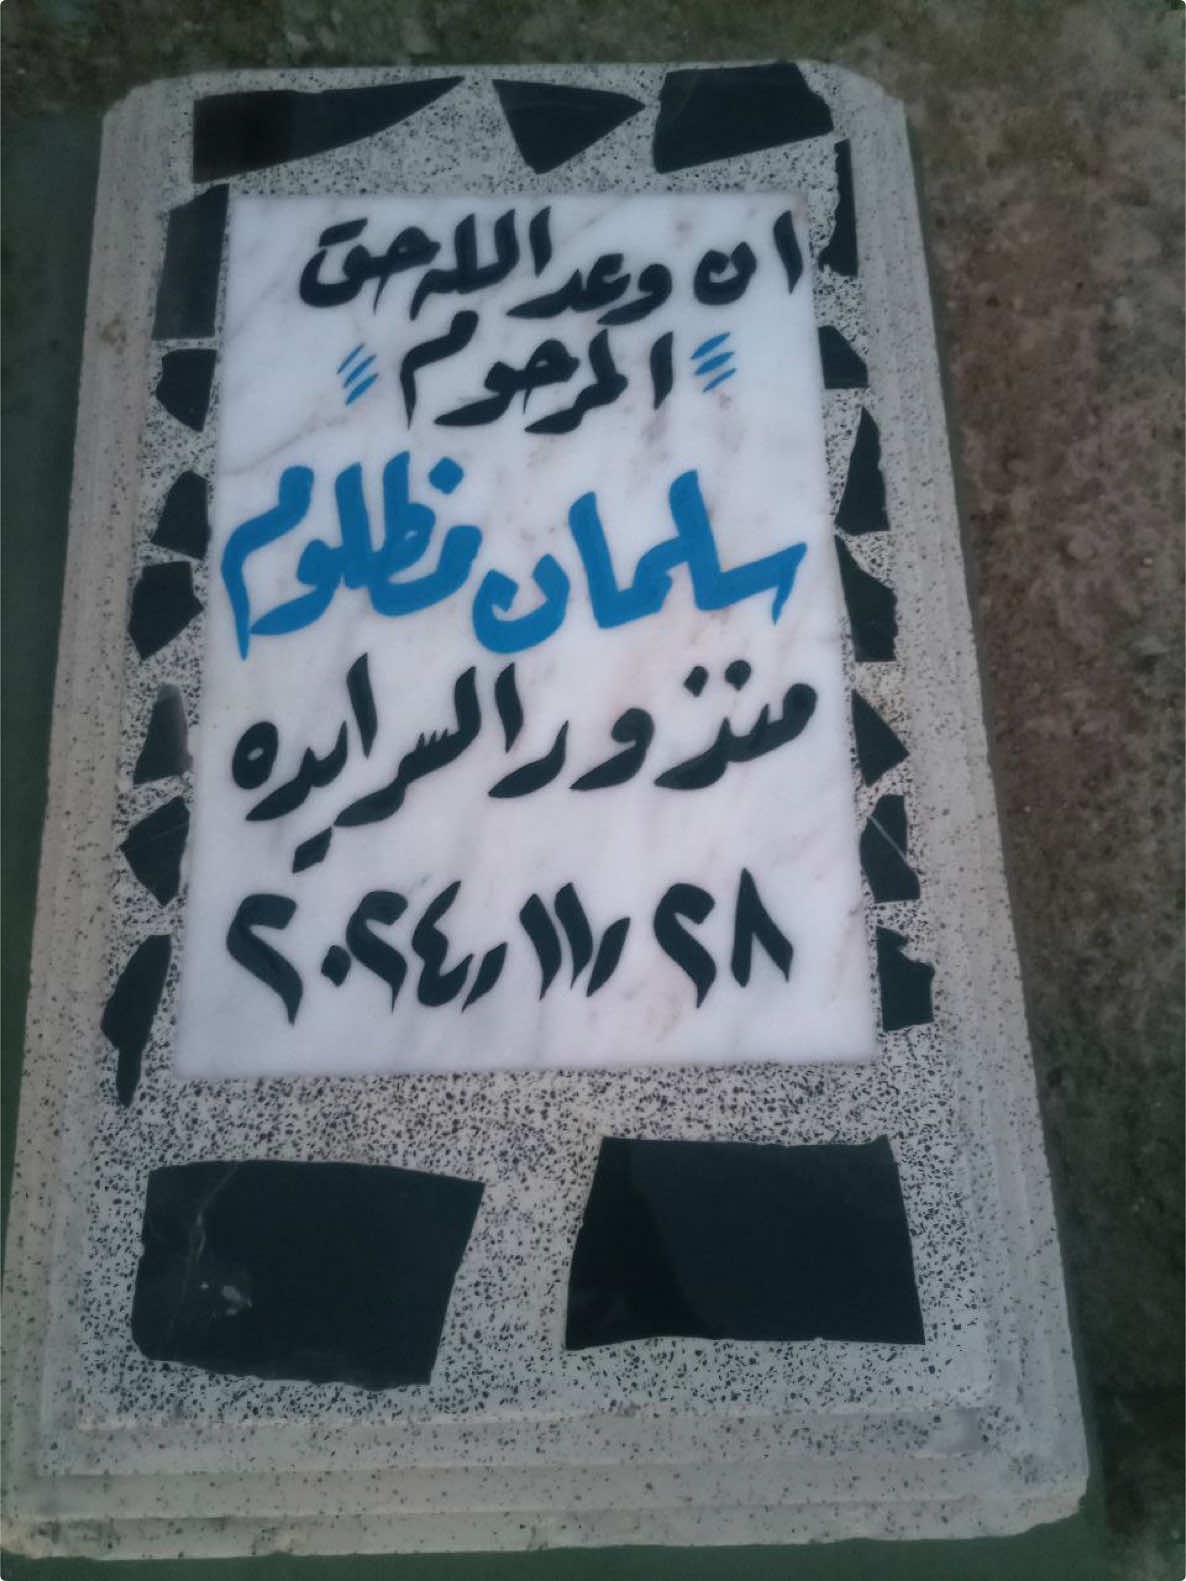 ان وعد الله حق
المرحوم
سلمان مظلوم
منذور السرايده
٢٨ / ١١ / ٢٠٢٤